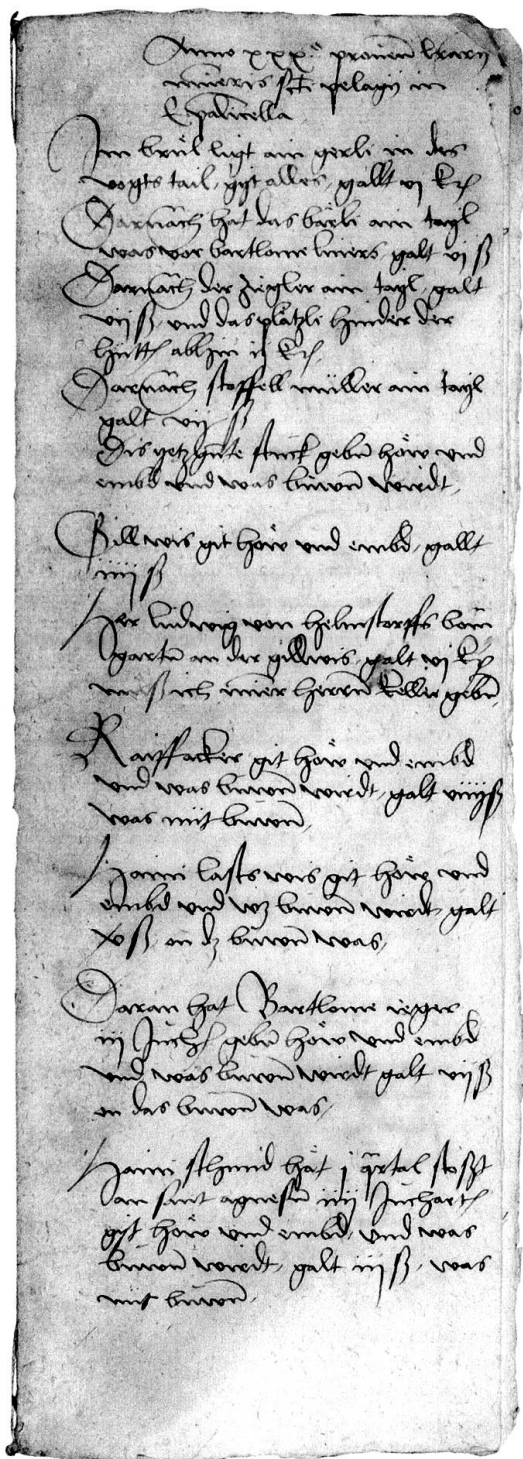 Anno xxx° prouen
muneris scti pelagij in
Episcopalicella
Im brüel ligt ain gerli in des
vogts tail, gyt alles, gallt vj
Darnäch hat das bärli ain tayl
was vor bartlome liners, galt vj ß
Darnäch der ziegler ain tayl, galt
vij ß, und das plätzli hinder der
hütt abhin ij
Darnäch stoffell müller ain tayl
galt vij ß
Dis yetzgnte stuck gebn höw vnd
embd vnd was buwen wirdt,
Gillwis git höw vnd embd, gallt
iiij ß
Her ludwig von helmstorffs bom
garten an der gillwis, galt vj
mus ich miner herrn keller gebn,
Raiffacker git höw vnd embd
vnd was buwen wirdt, galt viiij ß
was nit buwen,
Haini lasts wis git höw vnd
embd vnd wz buwen wirdt, galt
xv ß, on dz buwen was,
Daran hat Bartlome ieger
iij Juch gebn höw vnd embd
vnd was buwen wirdt galt vij ß
on das buwen was,
Haini schmid hät j qrtal stoßt
an sant agnesen iiij Juchart
gyt höw vnd embd, vnd was
buwen wirdt, galt iij ß, was
nit buwen,